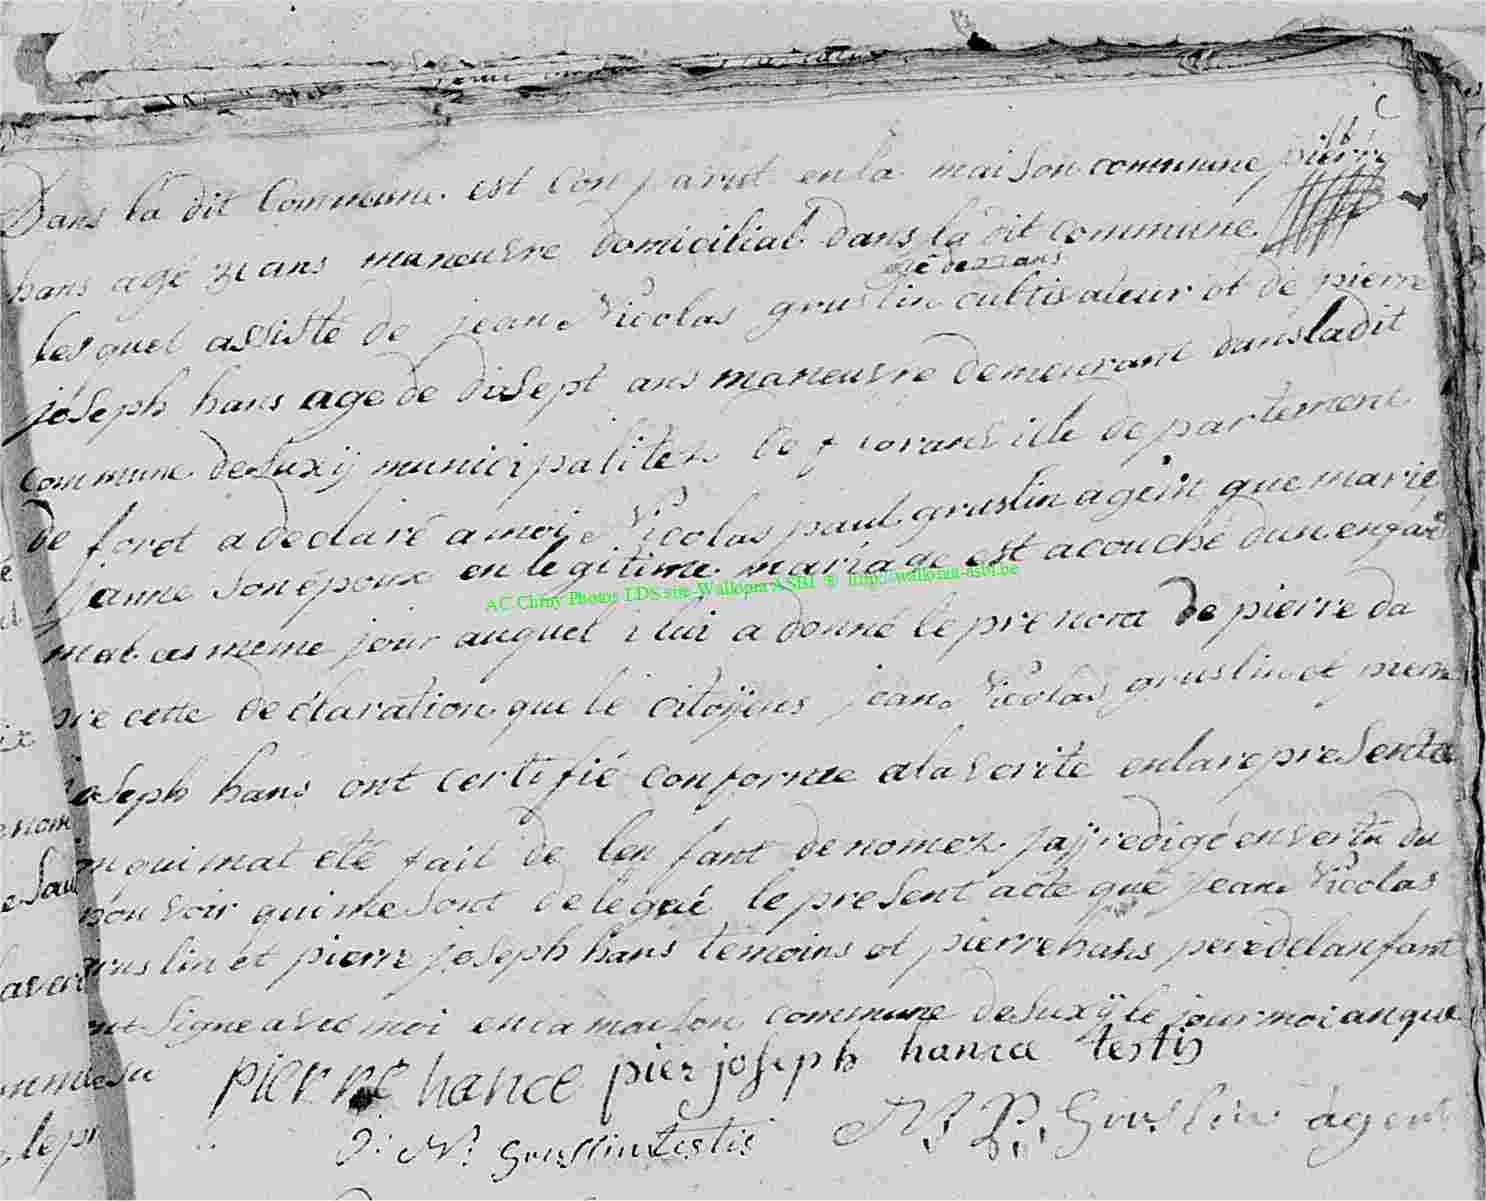 Dans la dit Commune est Comparut en la maison commune pierre
hans agé 31 ans maneuvre domiciliat dans la dit commune
agé de 22 ans
lesquel assiste de jean Nicolas gruslin cultivateur et de pierre
joseph hans age de disept ans maneuvre demeurant dans la dit
commune de Suxÿ municipalitez de departement
de foret a declaré a moi Nicolas paul gruslin agent que marie
janne son epouse en legitime mariage est acouché dun enfan
AC Chiny Photos LDS site Wallonia ASBL © http://wallonia-asbl.be
mal ces meme jour auquel i lui a donné le prenom de pierre da
pre cette declaration que le citoÿens jean Nicolas gruslin et pierre
joseph hans ont certifié conforme a la verite en la represente
on qui mat eté fait de len fant denomez jaÿ redigé en vertu du
pouvoir qui me sont delegué le present acte que jean Nicolas
gruslin et pierre joseph hans temoins et pierre hans pere de lanfant
ont signe avec moi en la maison commune de Suxÿ le jour moi an que
su
pierre hance pier joseph hance testis
J: N: Gruslin testis N: P: Gruslin agent